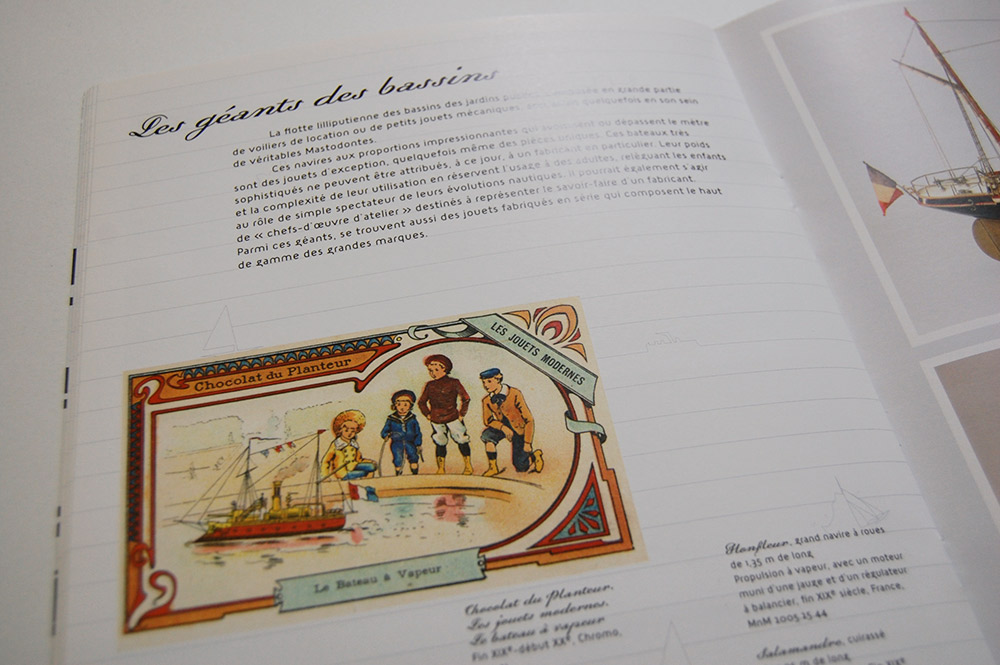 Les géants des bassins
La flotte lilliputienne des bassins des jardins en grande partie
de voiliers de location ou de petits jouets mécaniques, quelquefois en son sein
de véritables Mastodontes.
Ces navires aux proportions impressionnantes qui dépassent le mètre
sont des jouets d'exception, quelquefois même des pièces uniques. Ces bateaux très
sophistiqués ne peuvent être attribués, à ce jour, à un fabricant en particulier. Leur poids
et la complexité de leur utilisation en réservent l'usage à des adultes, reléguant les enfants
au rôle de simple spectateur de leurs évolutions nautiques. Il pourrait également s'agir
de « chefs-d'œuvre d'atelier » destinés à représenter le savoir-faire d'un fabricant.
Parmi ces géants, se trouvent aussi des jouets fabriqués en série qui composent le haut
de gamme des grandes marques.
Chocolat du Planteur
LES JOUETS MODERNES
Le Bateau à Vapeur
Chocolat du Planteur.
Les jouets modernes.
Le bateau à vapeur
Fin XIXe-début XXe, Chromo.
Honfleur, grand navire à roues
de 1.35 m de long
Propulsion à vapeur, avec un moteur
muni d'une jauge et d'un régulateur
à balancier, fin XIXe siècle, France,
MnM 2005 25 44
Salamandre, cuirassé
m de long